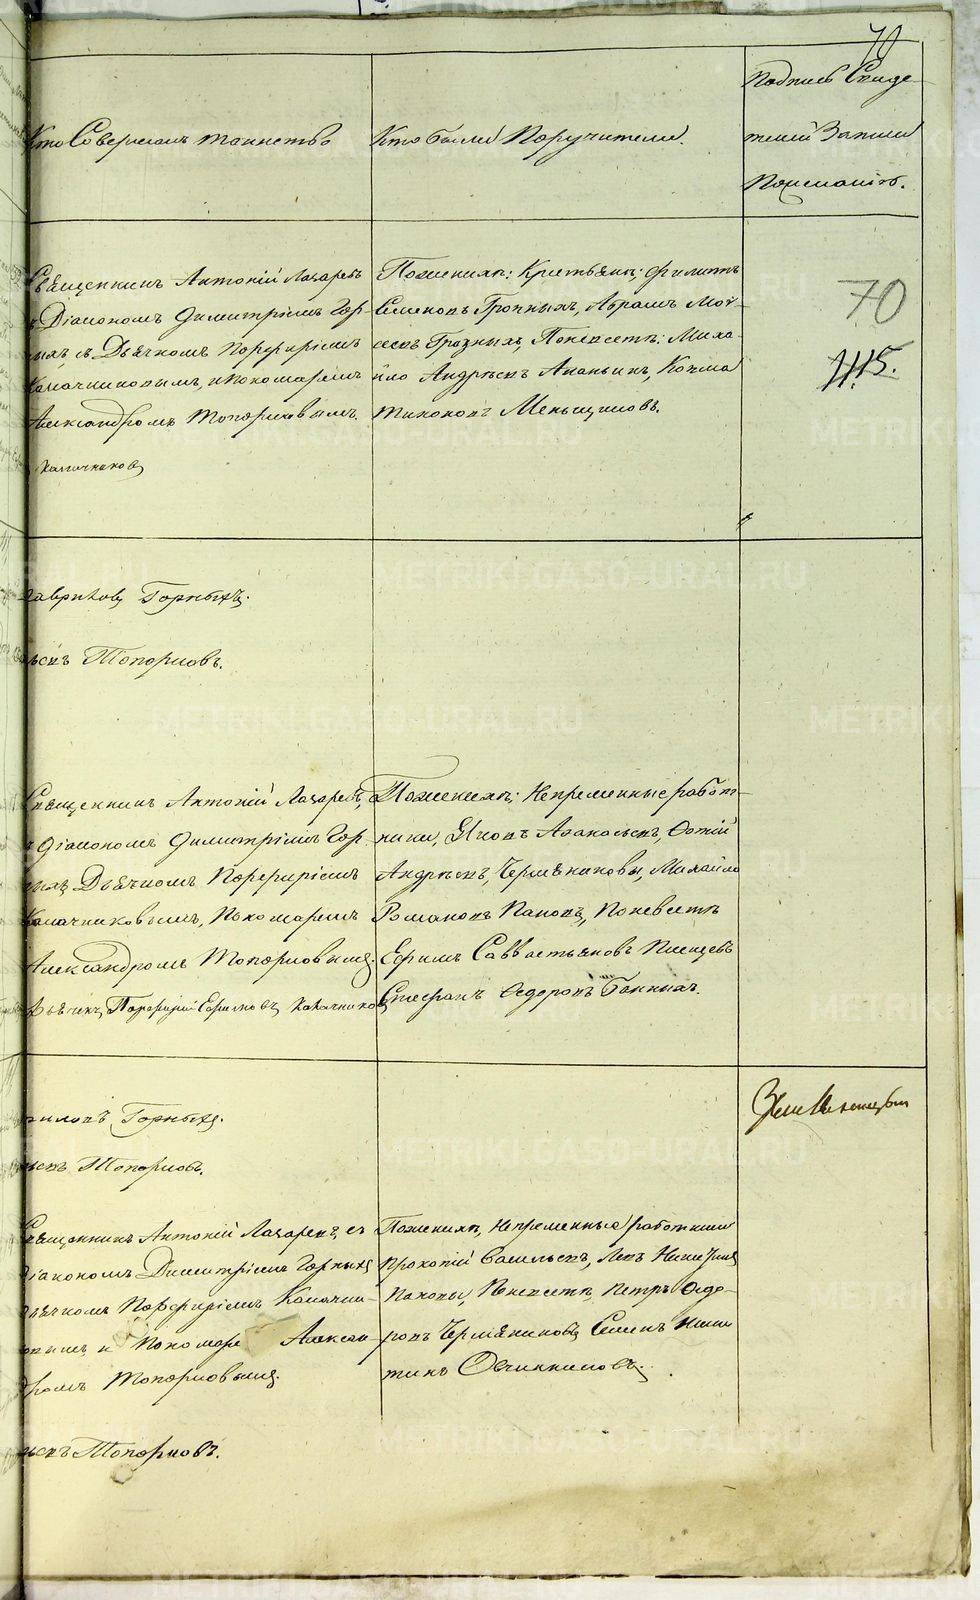 70
Кто Совершалъ таинство
Кто были Поручители.
Подпись Свиде-
телей Записи
По желанію.
Священникъ Антоній Лазаревъ
съ Діакономъ Димитріемъ Гор-
ныхъ, съ Дьячкомъ Порфиріемъ
Калачниковымъ, и Пономаремъ
Александромъ Топорковымъ.
Калачниковъ
По женихѣ: Крестьяне; Филиппъ
Семеновъ Грозныхъ, Абрамъ Мои-
сеевъ Грозныхъ, По невѣстѣ: Миха-
йло Андреевъ Ананьинъ, Козма
Тихоновъ Меньщиковъ.
70
1115.
Гавриловъ Горныхъ.
ьевъ Топорковъ.
Священникъ Антоній Лазаревъ, съ
Діакономъ Димитріемъ Гор-
ныхъ Дьячкомъ Порфиріемъ
Калачниковымъ, Пономаремъ
Александромъ Топорковымъ.
Дьячекъ Порфирій Ефимовъ Калачниковъ
По женихѣ; Непременные работ-
ники, Яковъ Афанасьевъ, Фотій
Андреевъ, Чермяниновы, Михайло
Романовъ Пановъ, По невѣстѣ
Ефимъ Савватьяновъ Писцовъ
Стефанъ Федоровъ Ганиныхъ.
риловъ Горныхъ.
ьевъ Топорковъ.
Священникъ Антоній Лазаревъ, съ
Діакономъ Димитріемъ Горныхъ
Дьячкомъ Порфиріемъ Калачни-
ковымъ и Пономаре Алексан-
дромъ Топорковымъ.
ьевъ Топорковъ.
По женихѣ, Непременные работники
Прокопій Васильевъ, Левъ Никитинъ
Пановы, По невѣстѣ, Петръ Федо-
ровъ Чермяниновъ Семенъ Ники
тинъ Овчинниковъ.
METRIKI.GASO-URAL.RU